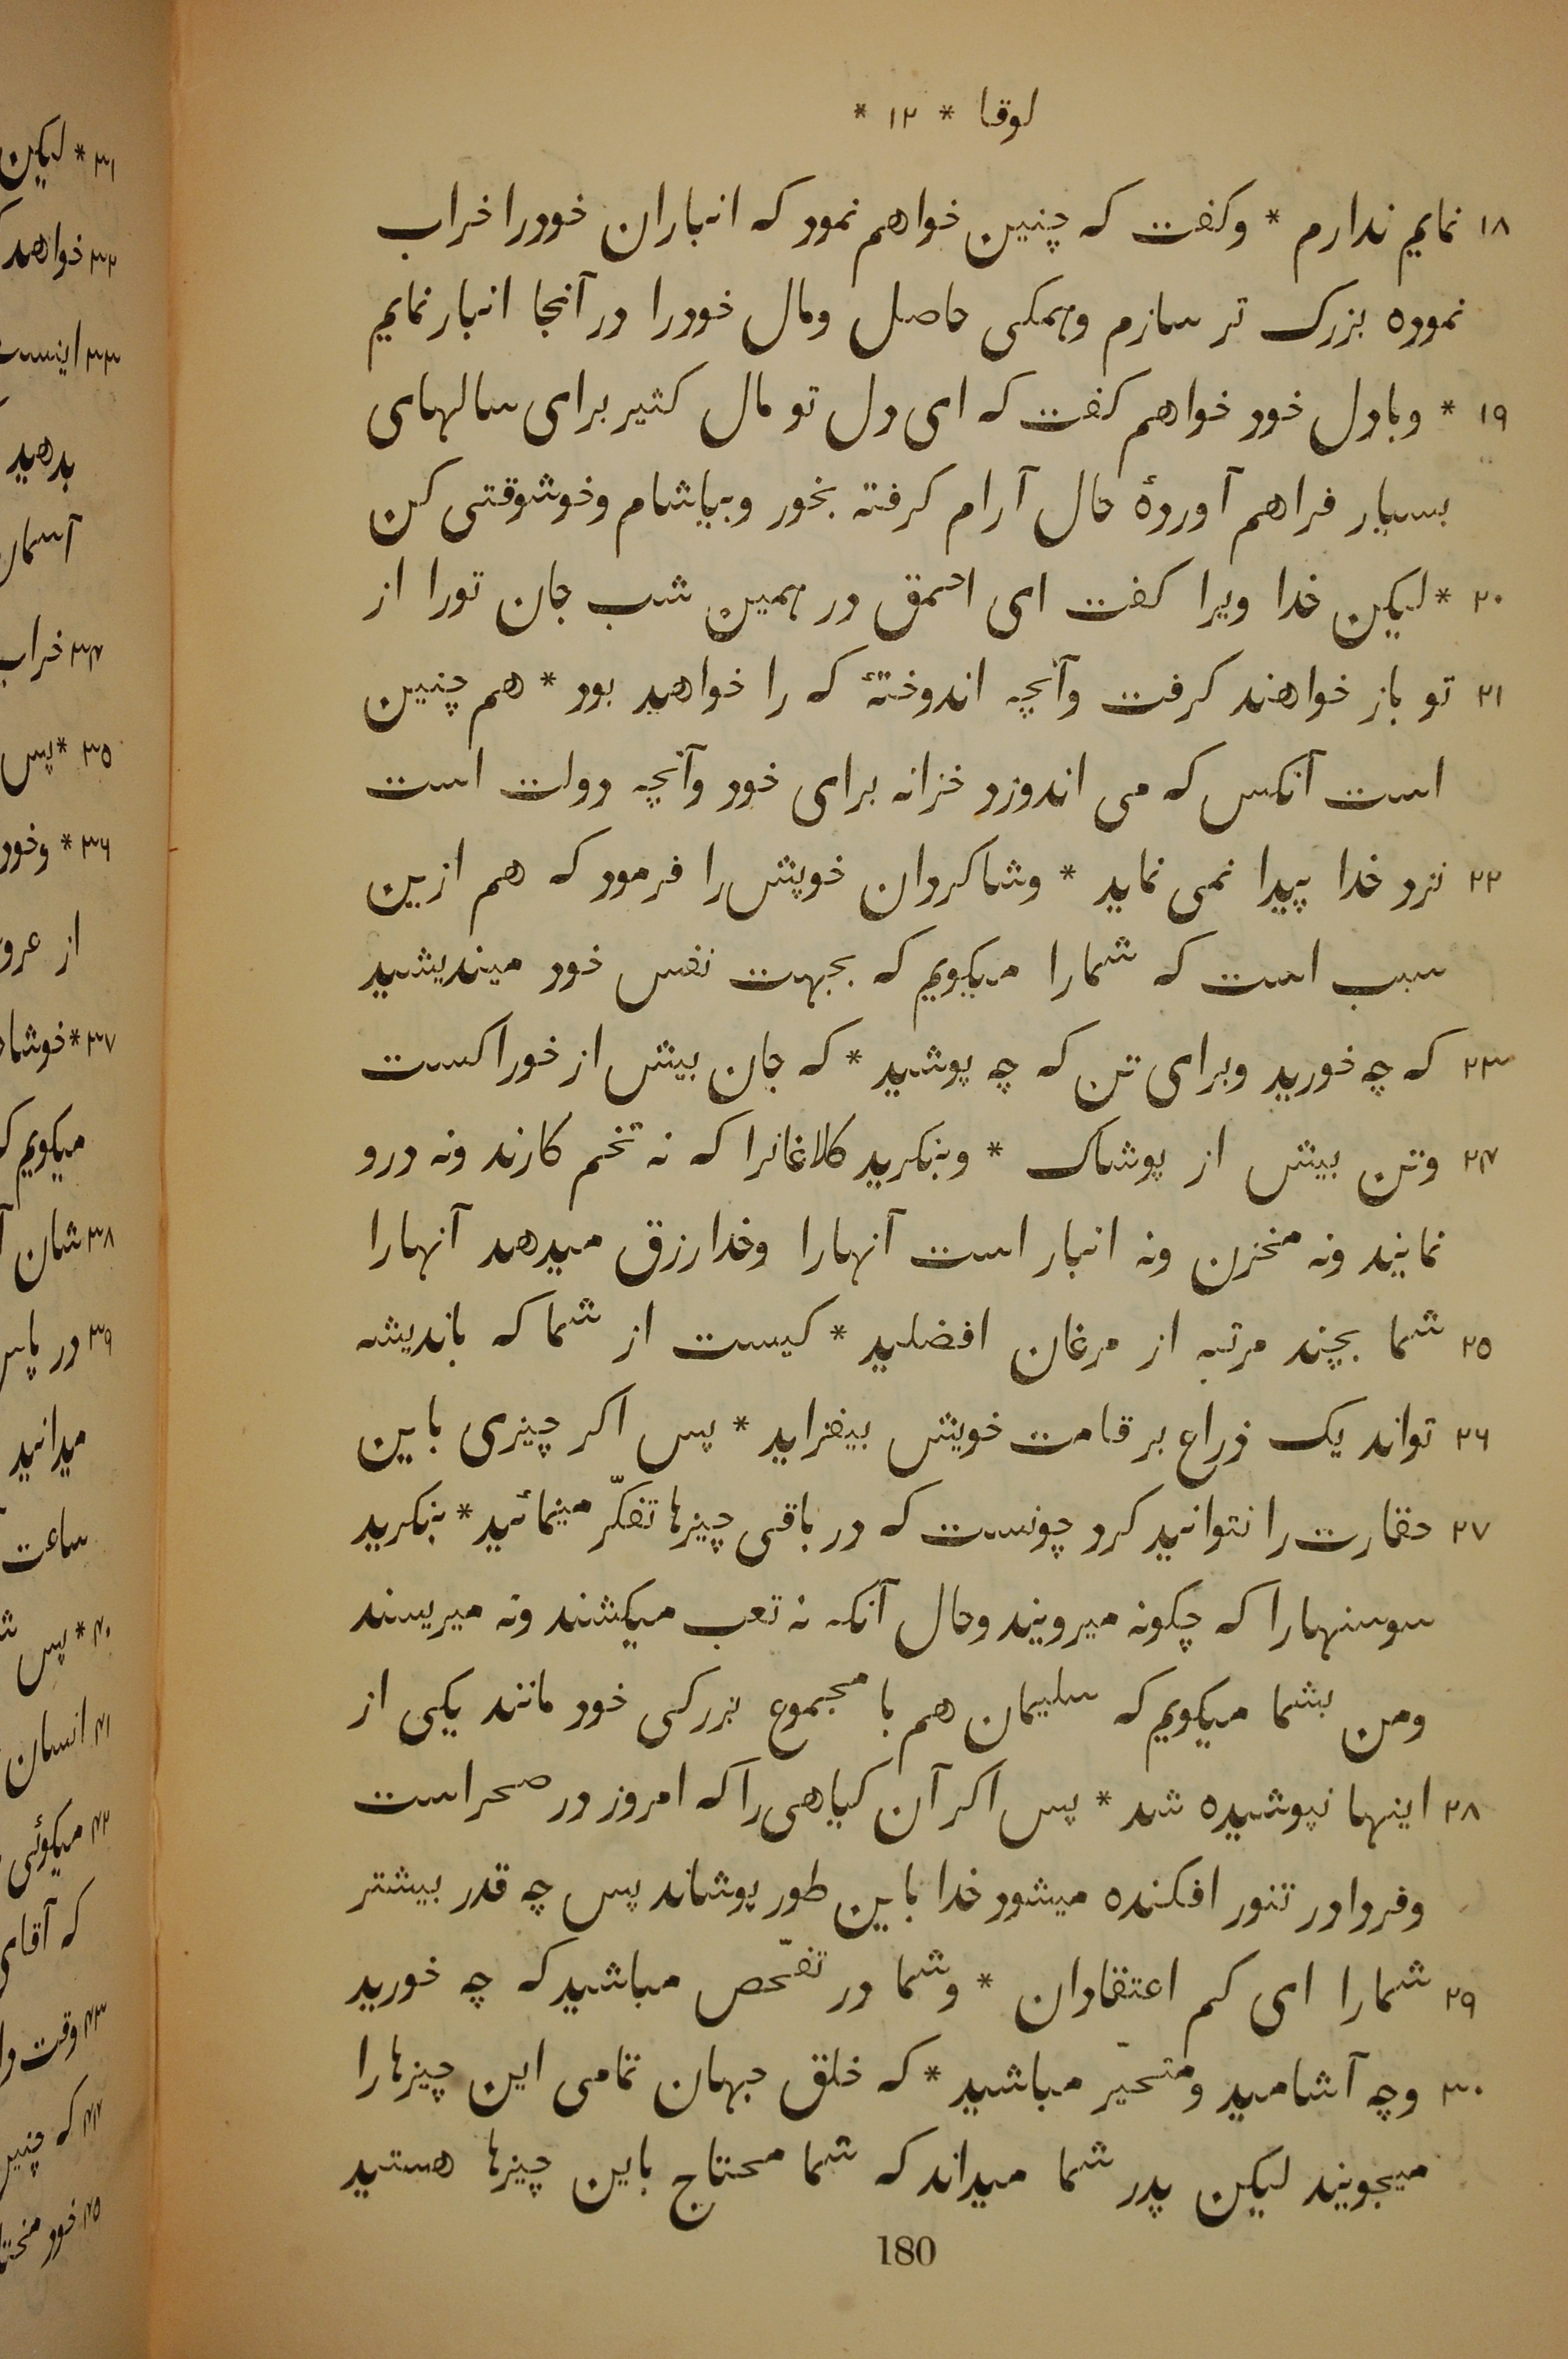 لوقا * ۱۲ *
۱۸ نمایم ندارم * وکفت که چنین خواهم نمود که انباران خودرا خراب
نموده بزرک تر سازم وهمکی حاصل ومال خودرا در آنجا انبار نمایم
۱۹ * وبادل خود خواهم کفت که ای دل تو مال کثیر برای سالهای
بسیار فراهم آوردۀ حال آرام کرفته بخور وبیاشام وخوشوقتی کن
۲۰ * لیکن خدا ویرا کفت ای احمق در همین شب جان تورا از
۲۱ تو باز خواهند کرفت وآنچه اندوختۀ که را خواهد بود * هم چنین
است آنکس که می اندوزد خزانه برای خود وآنچه دولت است
۲۲ نزد خدا پیدا نمی نماید * وشاکردان خویش را فرمود که هم ازین
سبب است که شمارا میکویم که بجهت نفس خود میندیشید
۲۳ که چه خورید وبرای تن که چه پوشید * که جان بیش از خوراکست
۲۴ وتن بیش از پوشاک * وبنکرید کلاغانرا که نه تخم کارند ونه درو
نمایند ونه مخزن ونه انبار است آنهارا وخدا رزق میدهد آنهارا
۲۵ شما بچند مرتبه از مرغان افضلید * کیست از شما که باندیشه
۲۶ تواند یک ذراع بر قامت خویش بیفزاید * پس اکر چیزی باین
۲۷ حقارت را نتوانید کرد چونست که در باقی چیزها تفکّر مینمائید * بنکرید
سوسنهارا که چکونه میرویند وحال آنکه نه تعب میکشند ونه میریسند
ومن بشما میکویم که سلیمان هم با مجموع بزرکی خود مانند یکی از
۲۸ اینها نپوشیده شد * پس اکر آن کیاهی را که امروز در صحراست
وفردا در تنور افکنده میشود خدا باین طور پوشاند پس چه قدر بیشتر
۲۹ شمارا ای کم اعتقادان * وشما در تفحّص مباشید که چه خورید
۳۰ وچه آشامید ومتحیّر مباشید * که خلق جهان تمامی این چیزها را
میجویند لیکن پدر شما میداند که شما محتاج باین چیزها هستید
180
۳۱ * لیکن
۳۲ خواهد
۳۳ اینست
بدهید
۳۴ خراب
۳۵ * پس
۳۶ * وخود
از
میکویم
۳۸ شان
۳۹ در
میدانید
ساعت
۴۰ * پس
۴۱ انسان
۴۲ میکوئی
که آقای
۴۳ وقت
۴۴ که
۴۵ خود